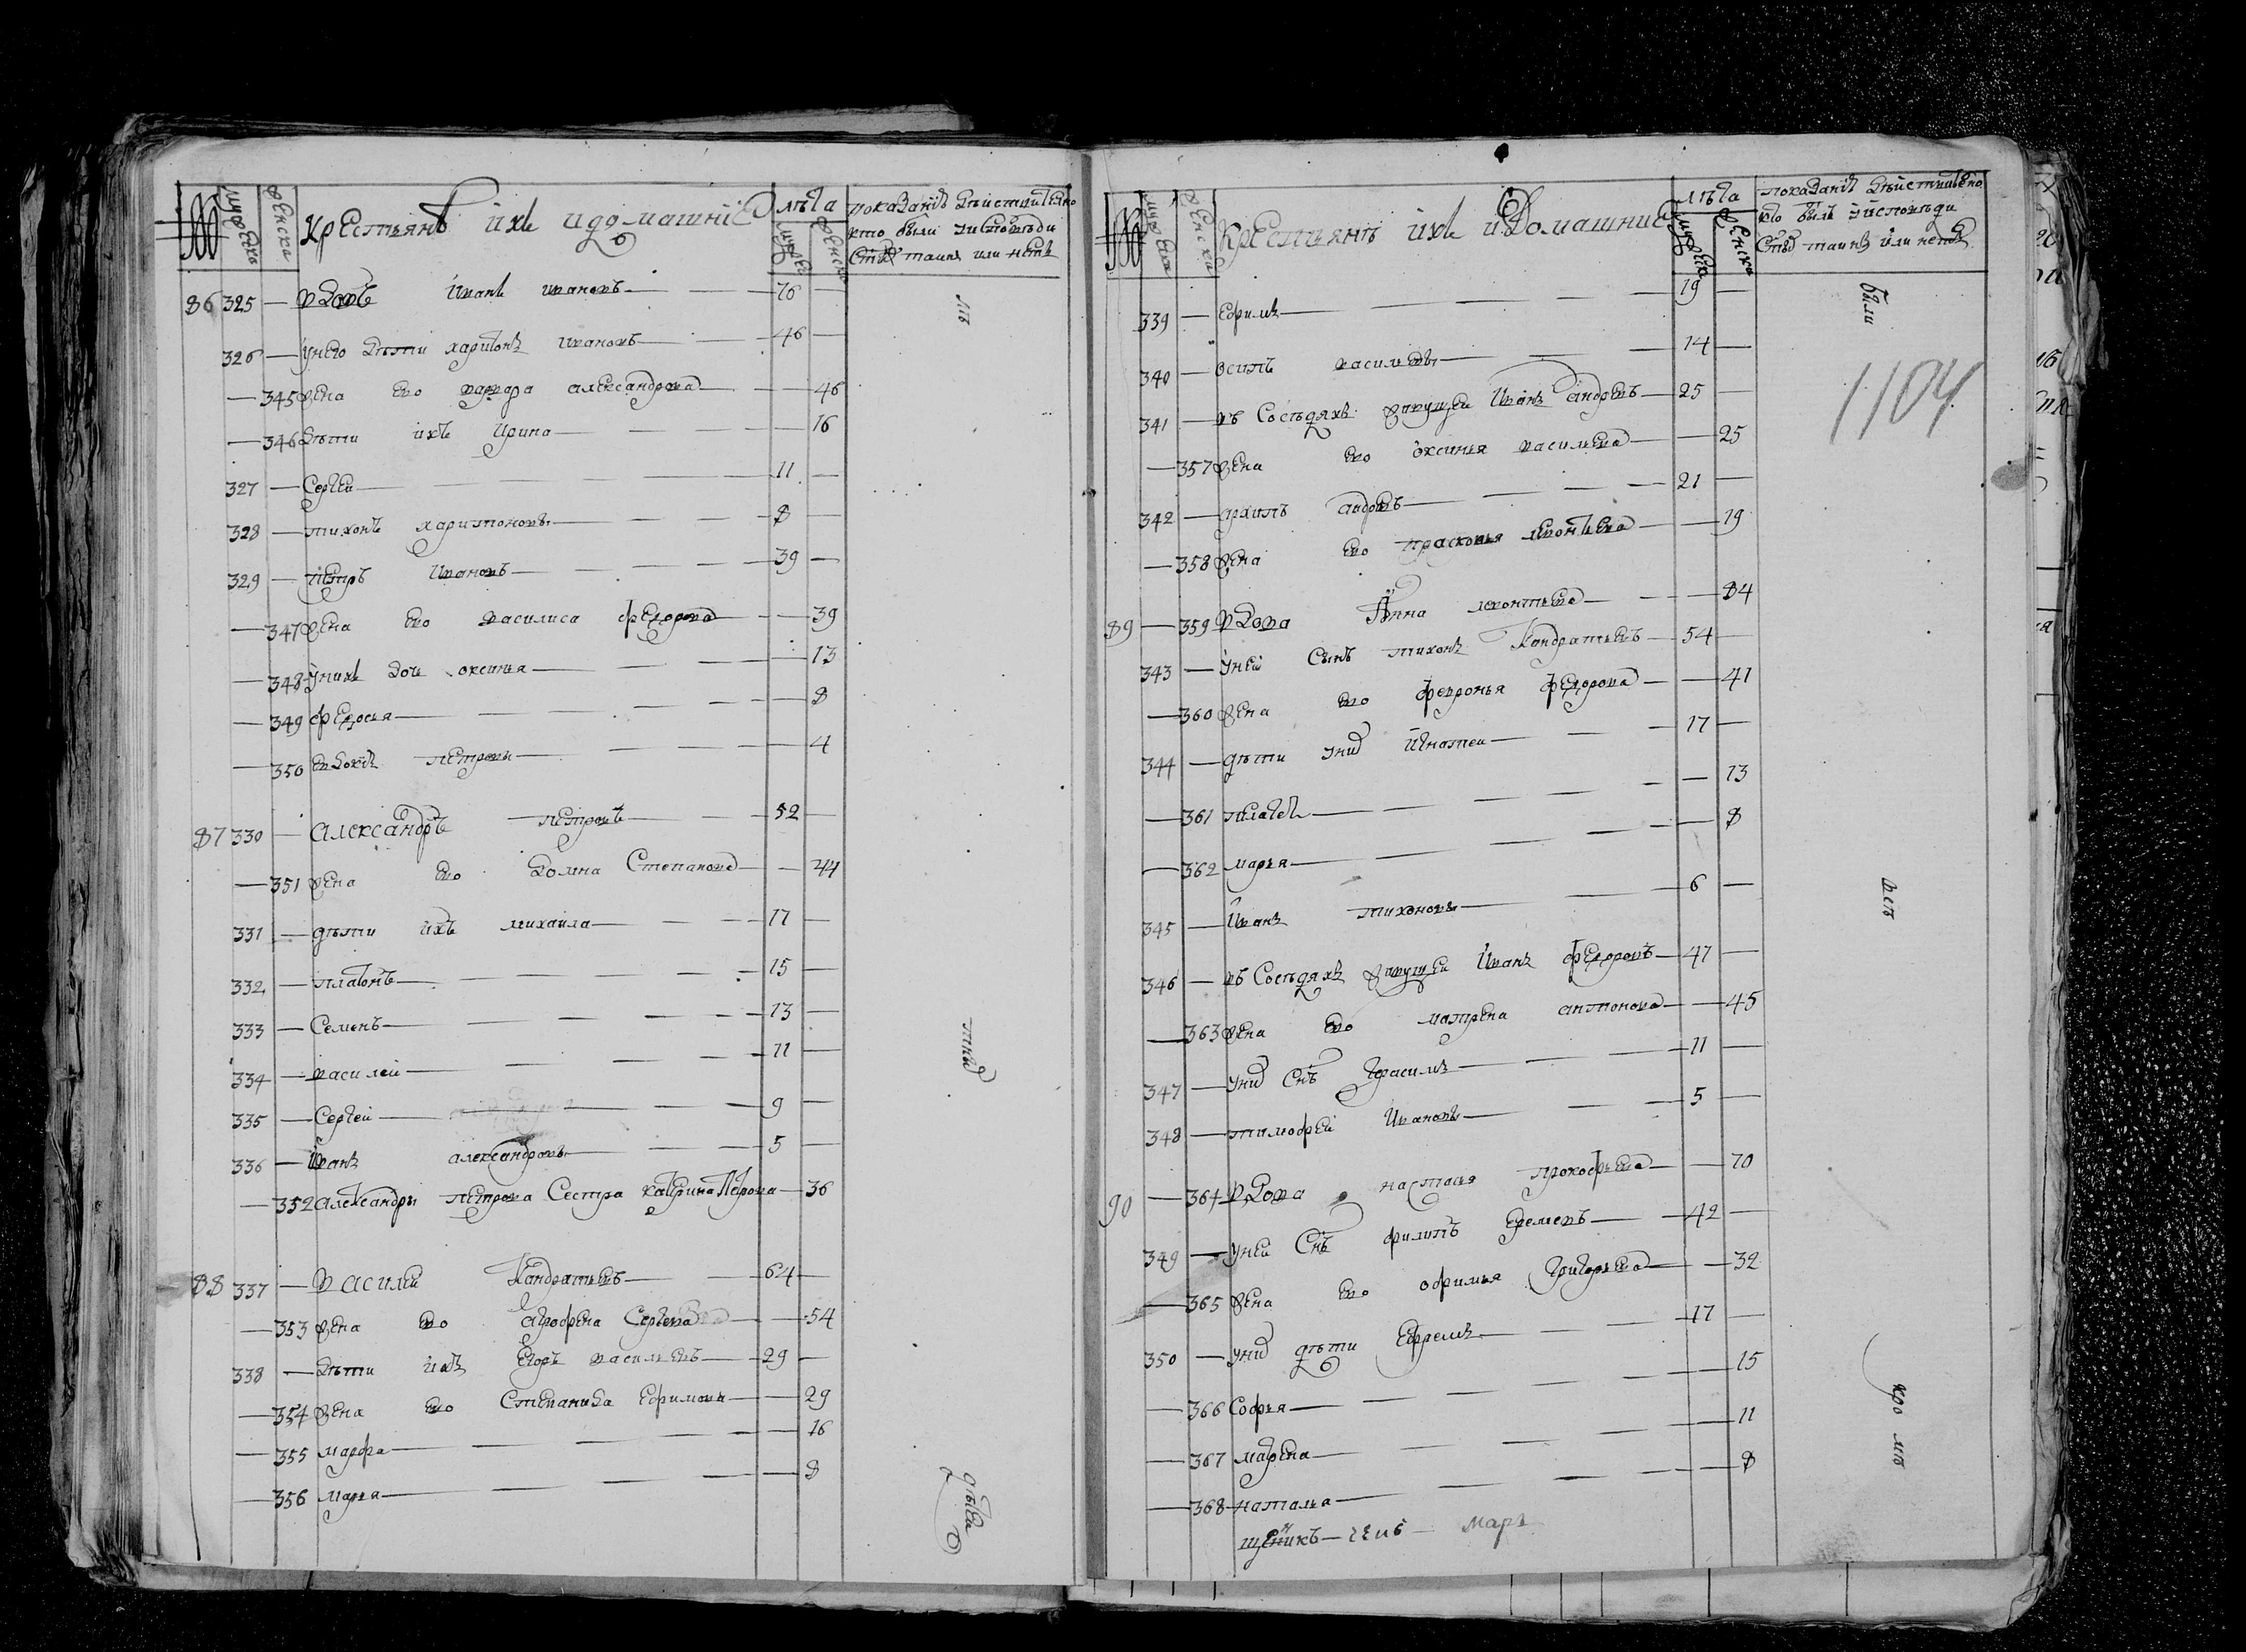 Крестьянѣ ихъ и домашніе
лѣта
показаніе дѣиствително
кто были уисповѣди
стыхъ таинъ или нетъ
86 325 — вдовъ Иванъ ивановъ — 76 —
326 — унего дѣти харитонъ ивановъ — 46 —
— 345 жена ево варвара александрова — 46
— 346 дѣти ихъ Ирина — 16
327 — Сергеи — 11 —
328 — тихонъ харитоновы — 8 —
329 — петръ Ивановъ — 39 —
— 347 жена ево василиса федорова — 39
— 348 унихъ дочь оксинья — 13
— 349 федосья — 8
— 350 евдокѣя петровы — 4
87 330 — Александръ петровъ — 52 —
— 351 жена ево домна Степанова — 44
331 — дѣти ихъ михаила — 17 —
332 — платонъ — 15 —
333 — Семенъ — 13 —
334 — василеи — 11 —
335 — Сергеи — 9 —
336 — Иванъ александровы — 5 —
— 352 александры петрова Сестра катрина Петрова — 36
88 337 — василеи Кандратьевъ — 64 —
— 353 жена ево агрофена Сергеева — 54
338 — дѣти ихъ Егоръ васильевъ — 29 —
— 354 жена ево Степанида Ефимова — 29
— 355 марфа — 16
— 356 марья — 8
Крестьянъ ихъ и домашние
лѣта
показаніе дѣиствително
кто былъ уисповѣди
стыхъ таинъ или нетъ
были
1104
339 — Ефимъ — 19 —
340 — осипъ васильевы — 14 —
341 — въ Сосѣдяхъ живущеи Иванъ андреевъ — 25 —
— 357 жена ево оксинья васильева — 25
342 — архипъ андреевъ — 21 —
— 358 жена ево прасковья леонтьева — 19
89 — 359 вдова Анна леонтьева — 84
343 — унеи Сынъ тихонъ Кандратьевъ — 54 —
— 360 жена ево февронья федорова — 41
344 — дѣти уних Игнатеи — 17 —
— 361 пилагея — 13
— 362 марья — 8
345 — Иванъ тихоновы — 6 —
346 — въ Сосѣдяхъ живущеи Иванъ федоровъ — 47 —
— 363 жена ево матрена антонова — 45
347 — уних Снъ Герасимъ — 11 —
348 — тимофеи Ивановы — 5 —
90 — 364 вдова настасья прокофьева — 70
349 — унеи Снъ филипъ Еремеевъ — 42 —
— 365 жена ево офимья Григорьева — 32
350 — уних дѣти Ефремъ — 17 —
— 366 Софья — 15
— 367 марена — 11
— 368 наталья — 8